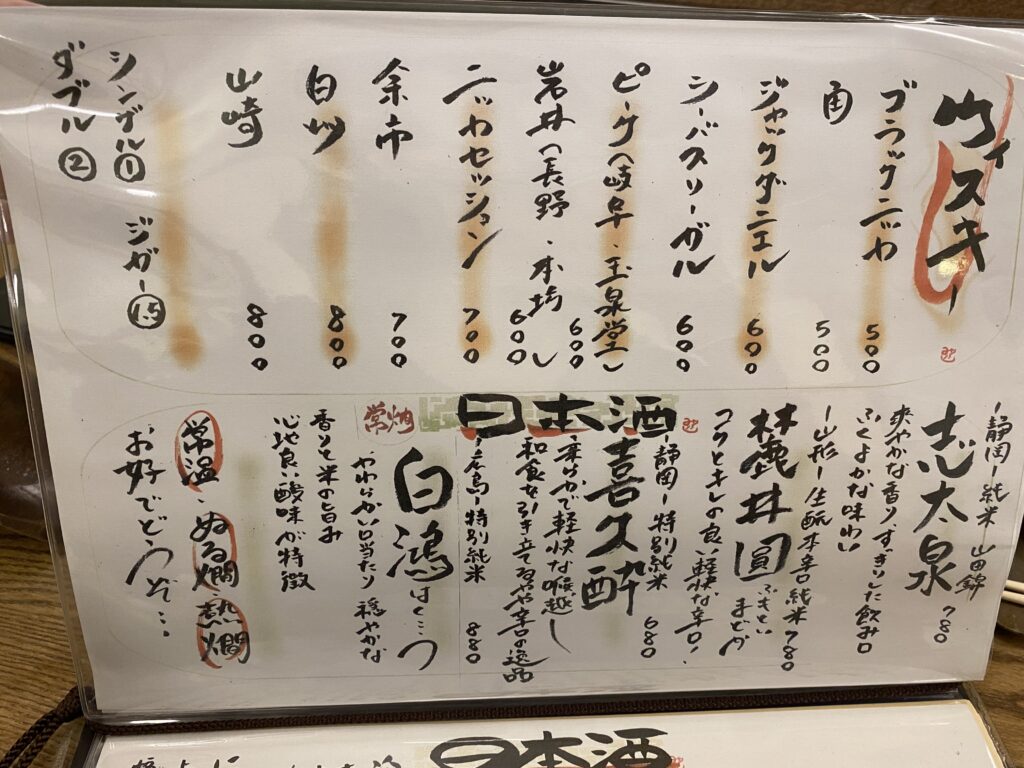 ウイスキー
ブラックニッカ 500
角 500
ジャックダニエル 600
シーバスリーガル 600
ピーク(岐阜・玉泉堂) 600
岩井(長野・本坊) 600
ニッカセッション 700
余市 700
白州 800
山崎 800
シングル① ジガー1.5
ダブル②
日本酒
常 燗
志太泉 780
静岡 純米 山田錦
爽やかな香り、すっきりした飲み口
ふくよかな味わい
麓井 圓 780
ふもとい まどか
山形 生酛本辛口純米
コクとキレの良い軽快な辛口!
喜久酔 680
静岡 特別純米
柔らかで軽快な喉越し
和食を引き立てるやや辛口の逸品
白鴻 はくこう 880
広島 特別純米
やわらかい口当たり 穏やかな
香りと米の旨み
心地良い酸味が特徴
常温・ぬる燗・熱燗
お好でどうぞ…
日本酒